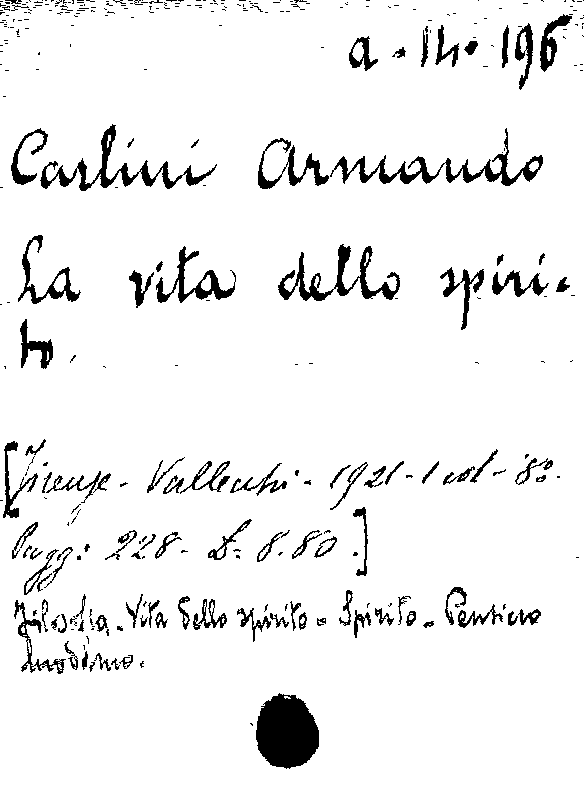 a. 14. 196
Carlini Armando
La vita dello spiri-
to.
[Firenze - Vallecchi - 1921 - 1 vol - 8º.
Pagg: 228 - L= 8.80.]
Filosofia - Vita dello spirito - Spirito - Pensiero
moderno.